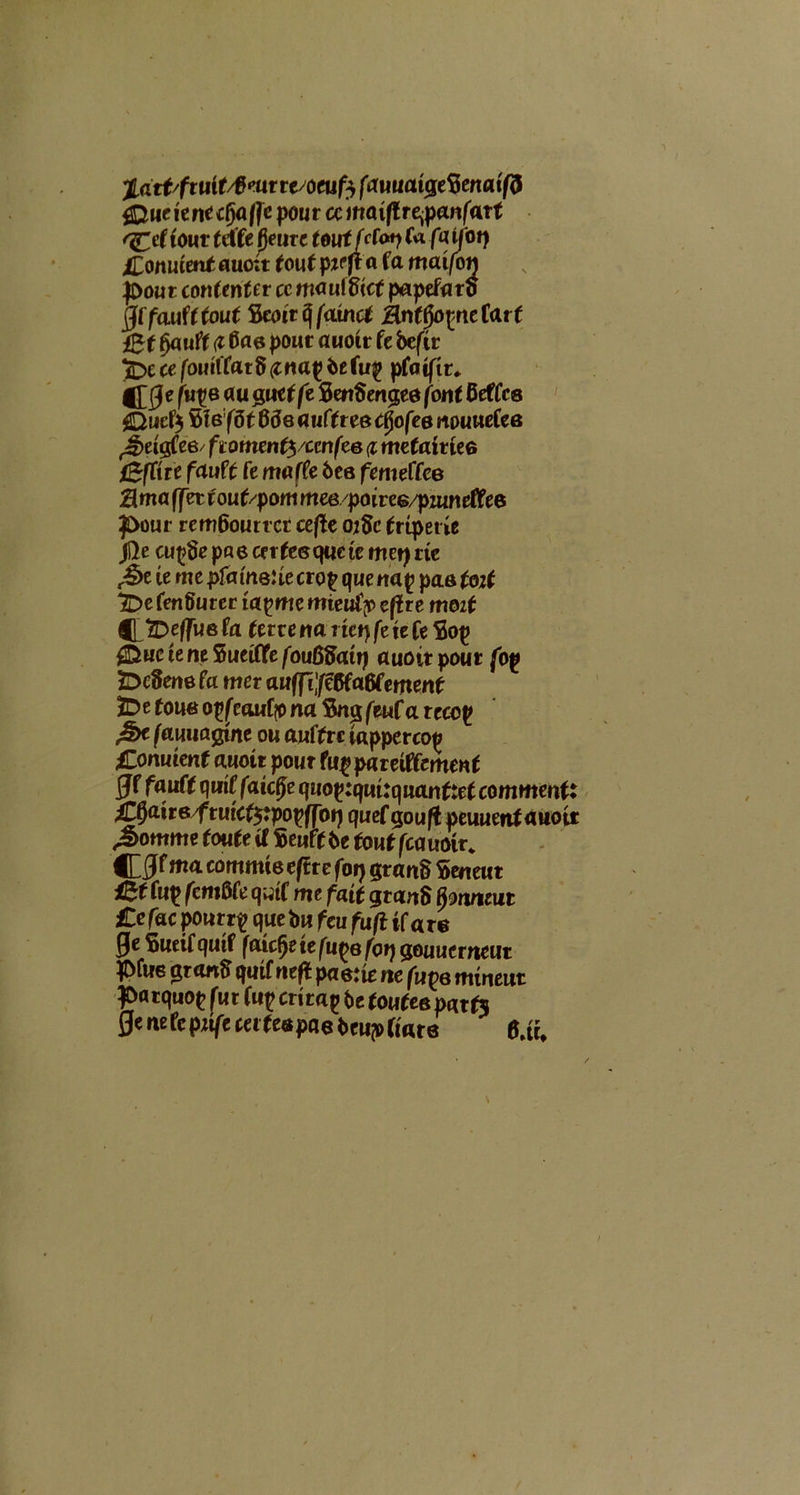 Lart/fruit/beurre/oeufz sauuaige venaisõ
Que ie ne chasse pour ce maistre,pansart
Tel iour telle heure tout selon la saison
Conuient auoir tout prest a la maison
Pour contenter ce mauldict papelard
Il fault tout veoir q̃ sainct Anthoyne lart
Et hault & bas pour auoir le desir
De ce souillard & nay de luy plaisir.
¶ Je suys au guet se vendenges sont belles
Quelz vĩs sõt bõs aultres choses nouuelles
Seigles/fromentz/cenſes & metairies
Eslire fault le masle des femelles
Amasser tout/pommes/poires/prunelles
Pour rembourrer ceste orde triperie
Ne cuyde pas certes que ie men rie
Se ie me plains:ie croy que nay pas tort
De lendurer iayme mieulx estre mort
¶ Dessus la terre na rien se ie le voy
Que ie ne vueille soubdain auoir pour soy
Dedens la mer aussi/semblablement
De tous oyseaulx na vng seul a recoy
Se sauuagine ou aultre iappercoy
Conuient auoir pour luy pareillement
Il fault quil saiche quoy:qui:quant:et comment:
Chairs/fruictz:poysson quel goust peuuent auoir
Somme toute il veult de tout scauoir.
¶ Il ma commis estre son grand veneur
Et luy semble quil me fait grand honneur
Ce sac pourry que du feu fust il ars
Je vueil quil saiche ie suys son gouuerneur
Plus grand quil nest pas:ie ne suys mineur
Parquoy sur luy criray de toutes partz
Je ne le prise certes pas deux liars b.ii.